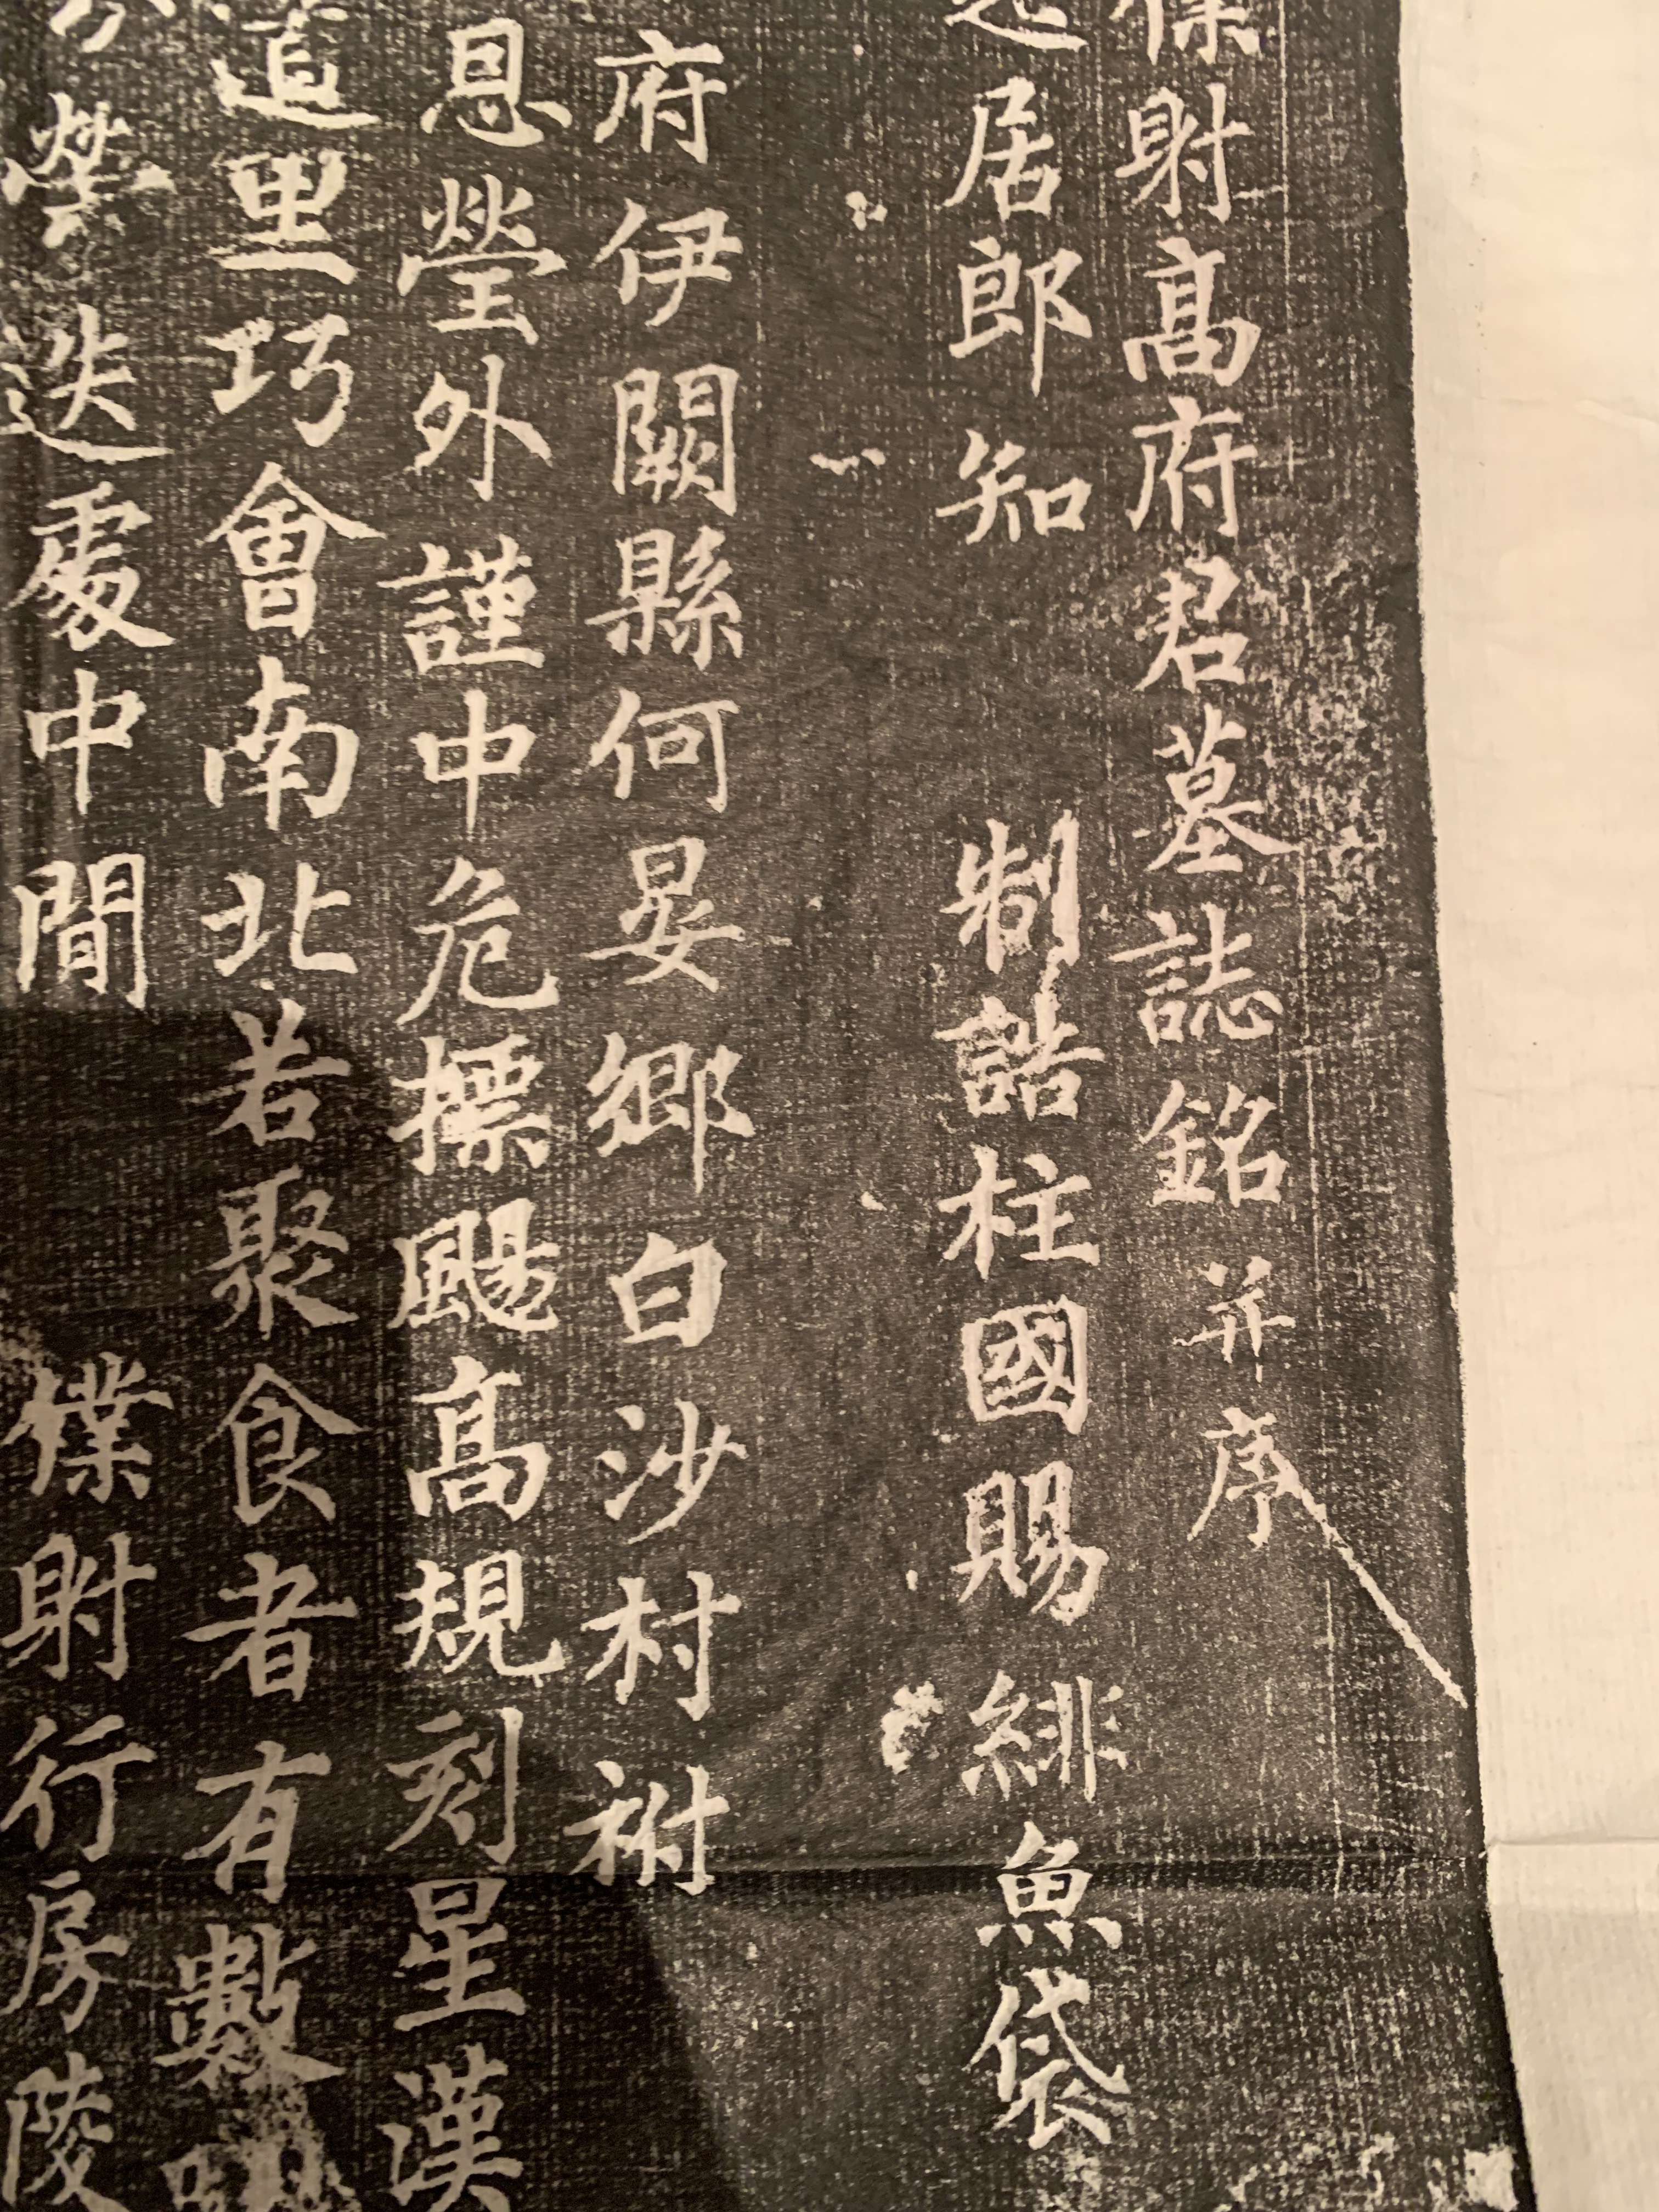 保射髙府君墓誌銘并序
起居郎知制誥柱國賜緋魚袋
府伊闕縣何晏鄉白沙村祔
恩瑩外謹中危標颺髙規刻星漢
追里巧會南北若聚食者有數
榮迭處中間僕射行房陵